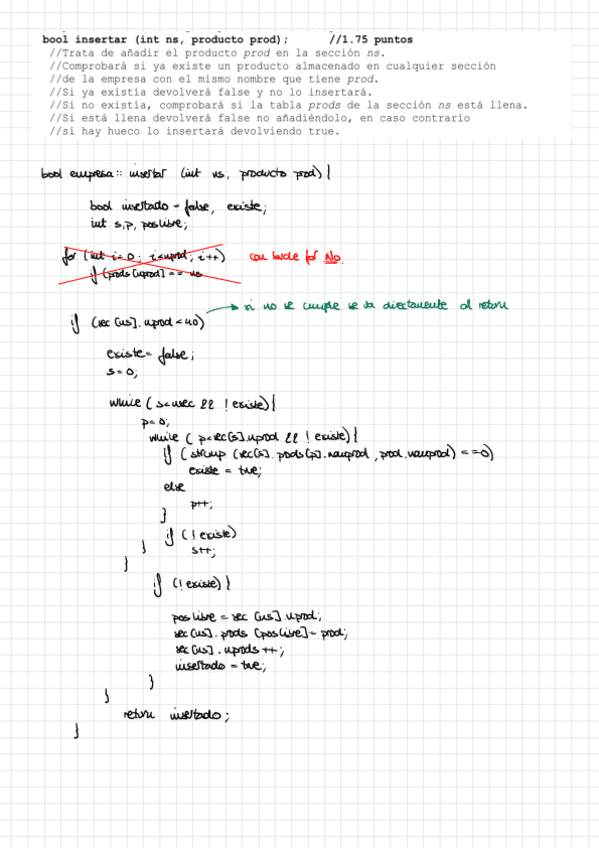 bool insertar (int ns, producto prod); //1.75 puntos
//Trata de añadir el producto prod en la sección ns.
//Comprobará si ya existe un producto almacenado en cualquier sección
//de la empresa con el mismo nombre que tiene prod.
//Si ya existía devolverá false y no lo insertará.
//Si no existía, comprobará si la tabla prods de la sección ns está llena.
//Si está llena devolverá false no añadiéndolo, en caso contrario
//si hay hueco lo insertará devolviendo true.
bool empresa:: insertar (int ns, producto prod) {
bool insertado = false, existe;
int s,p, poslibre;
for (int i=0; i<nprod; i++) con bucle for No.
if (prods[nprod] == ns
if (sec[ns].nprod<40) → si no se cumple se va directamente al return
existe= false;
s=0;
while ( s<nsec && ! existe) {
p=0;
while ( p<sec[s].nprod && ! existe) {
if ( strcmp (sec[s]. prods[p].nomprod , prod.nomprod) ==0)
existe = true;
else
p++;
}
if (! existe)
} s++;
}
if (! existe) {
poslibre = sec [ns].nprod;
sec[ns]. prods [poslibre]= prod;
sec[ns]. nprods ++;
insertado = true;
}
}
return insertado ;
}